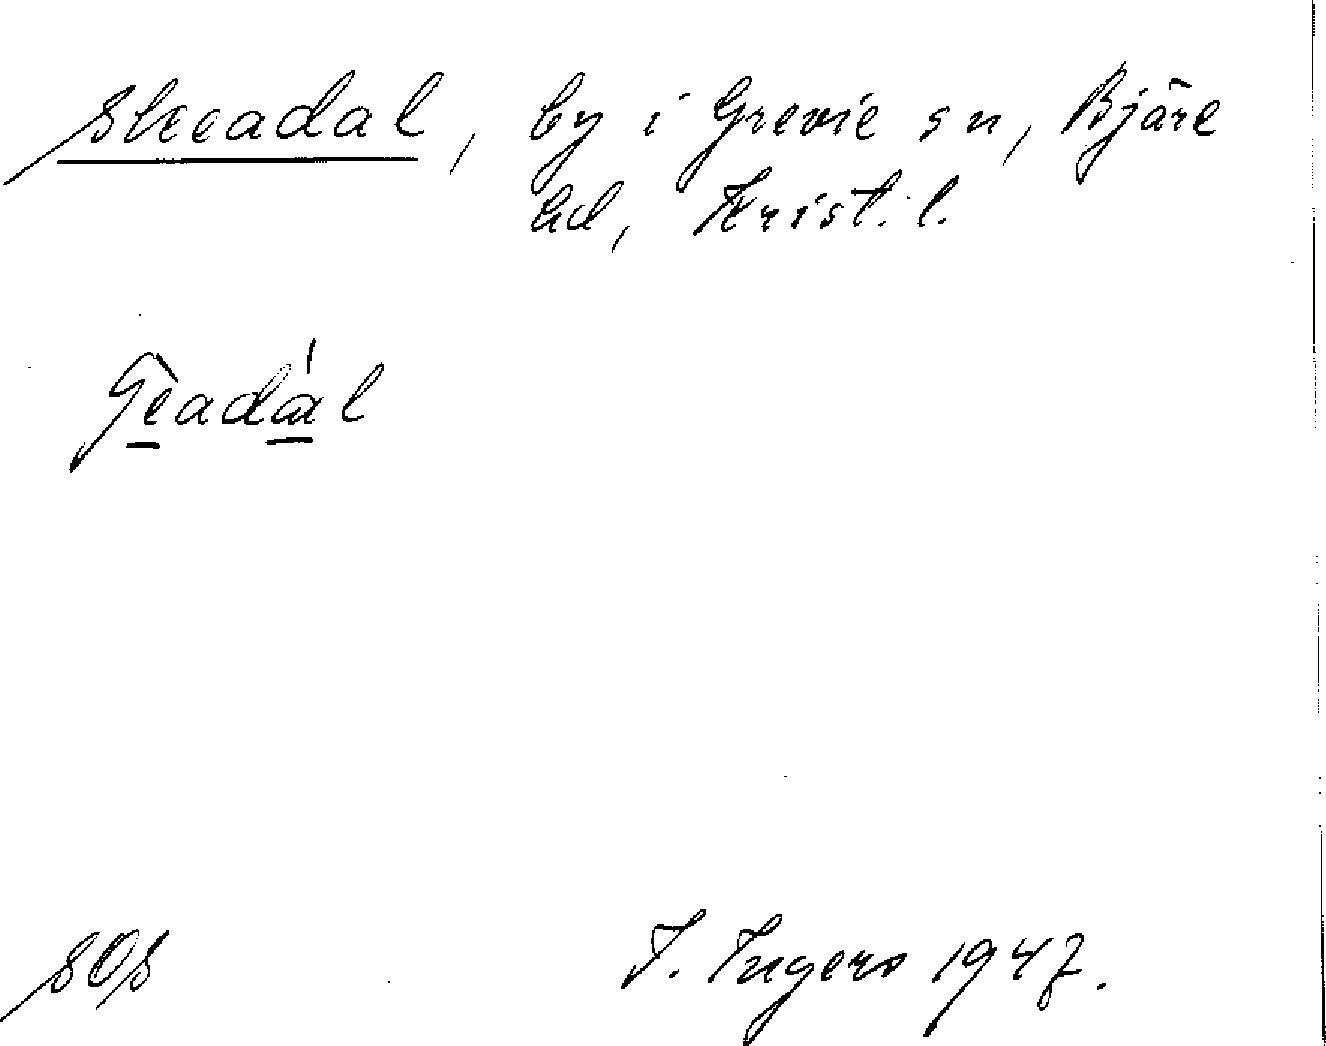 Skeadal, by i Grevie sn, Bjäre
hd, Krist. l.
ʃèadál
SOS I. Ingers 1947.